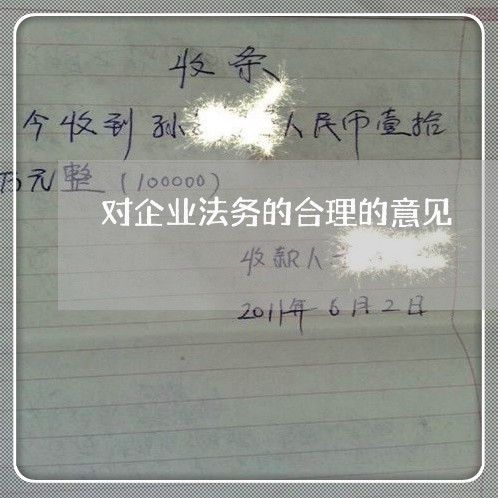 收条
今收到孙人民币壹拾
万元整(100000)
对企业法务的合理的意见
收款人
2011年6月2日